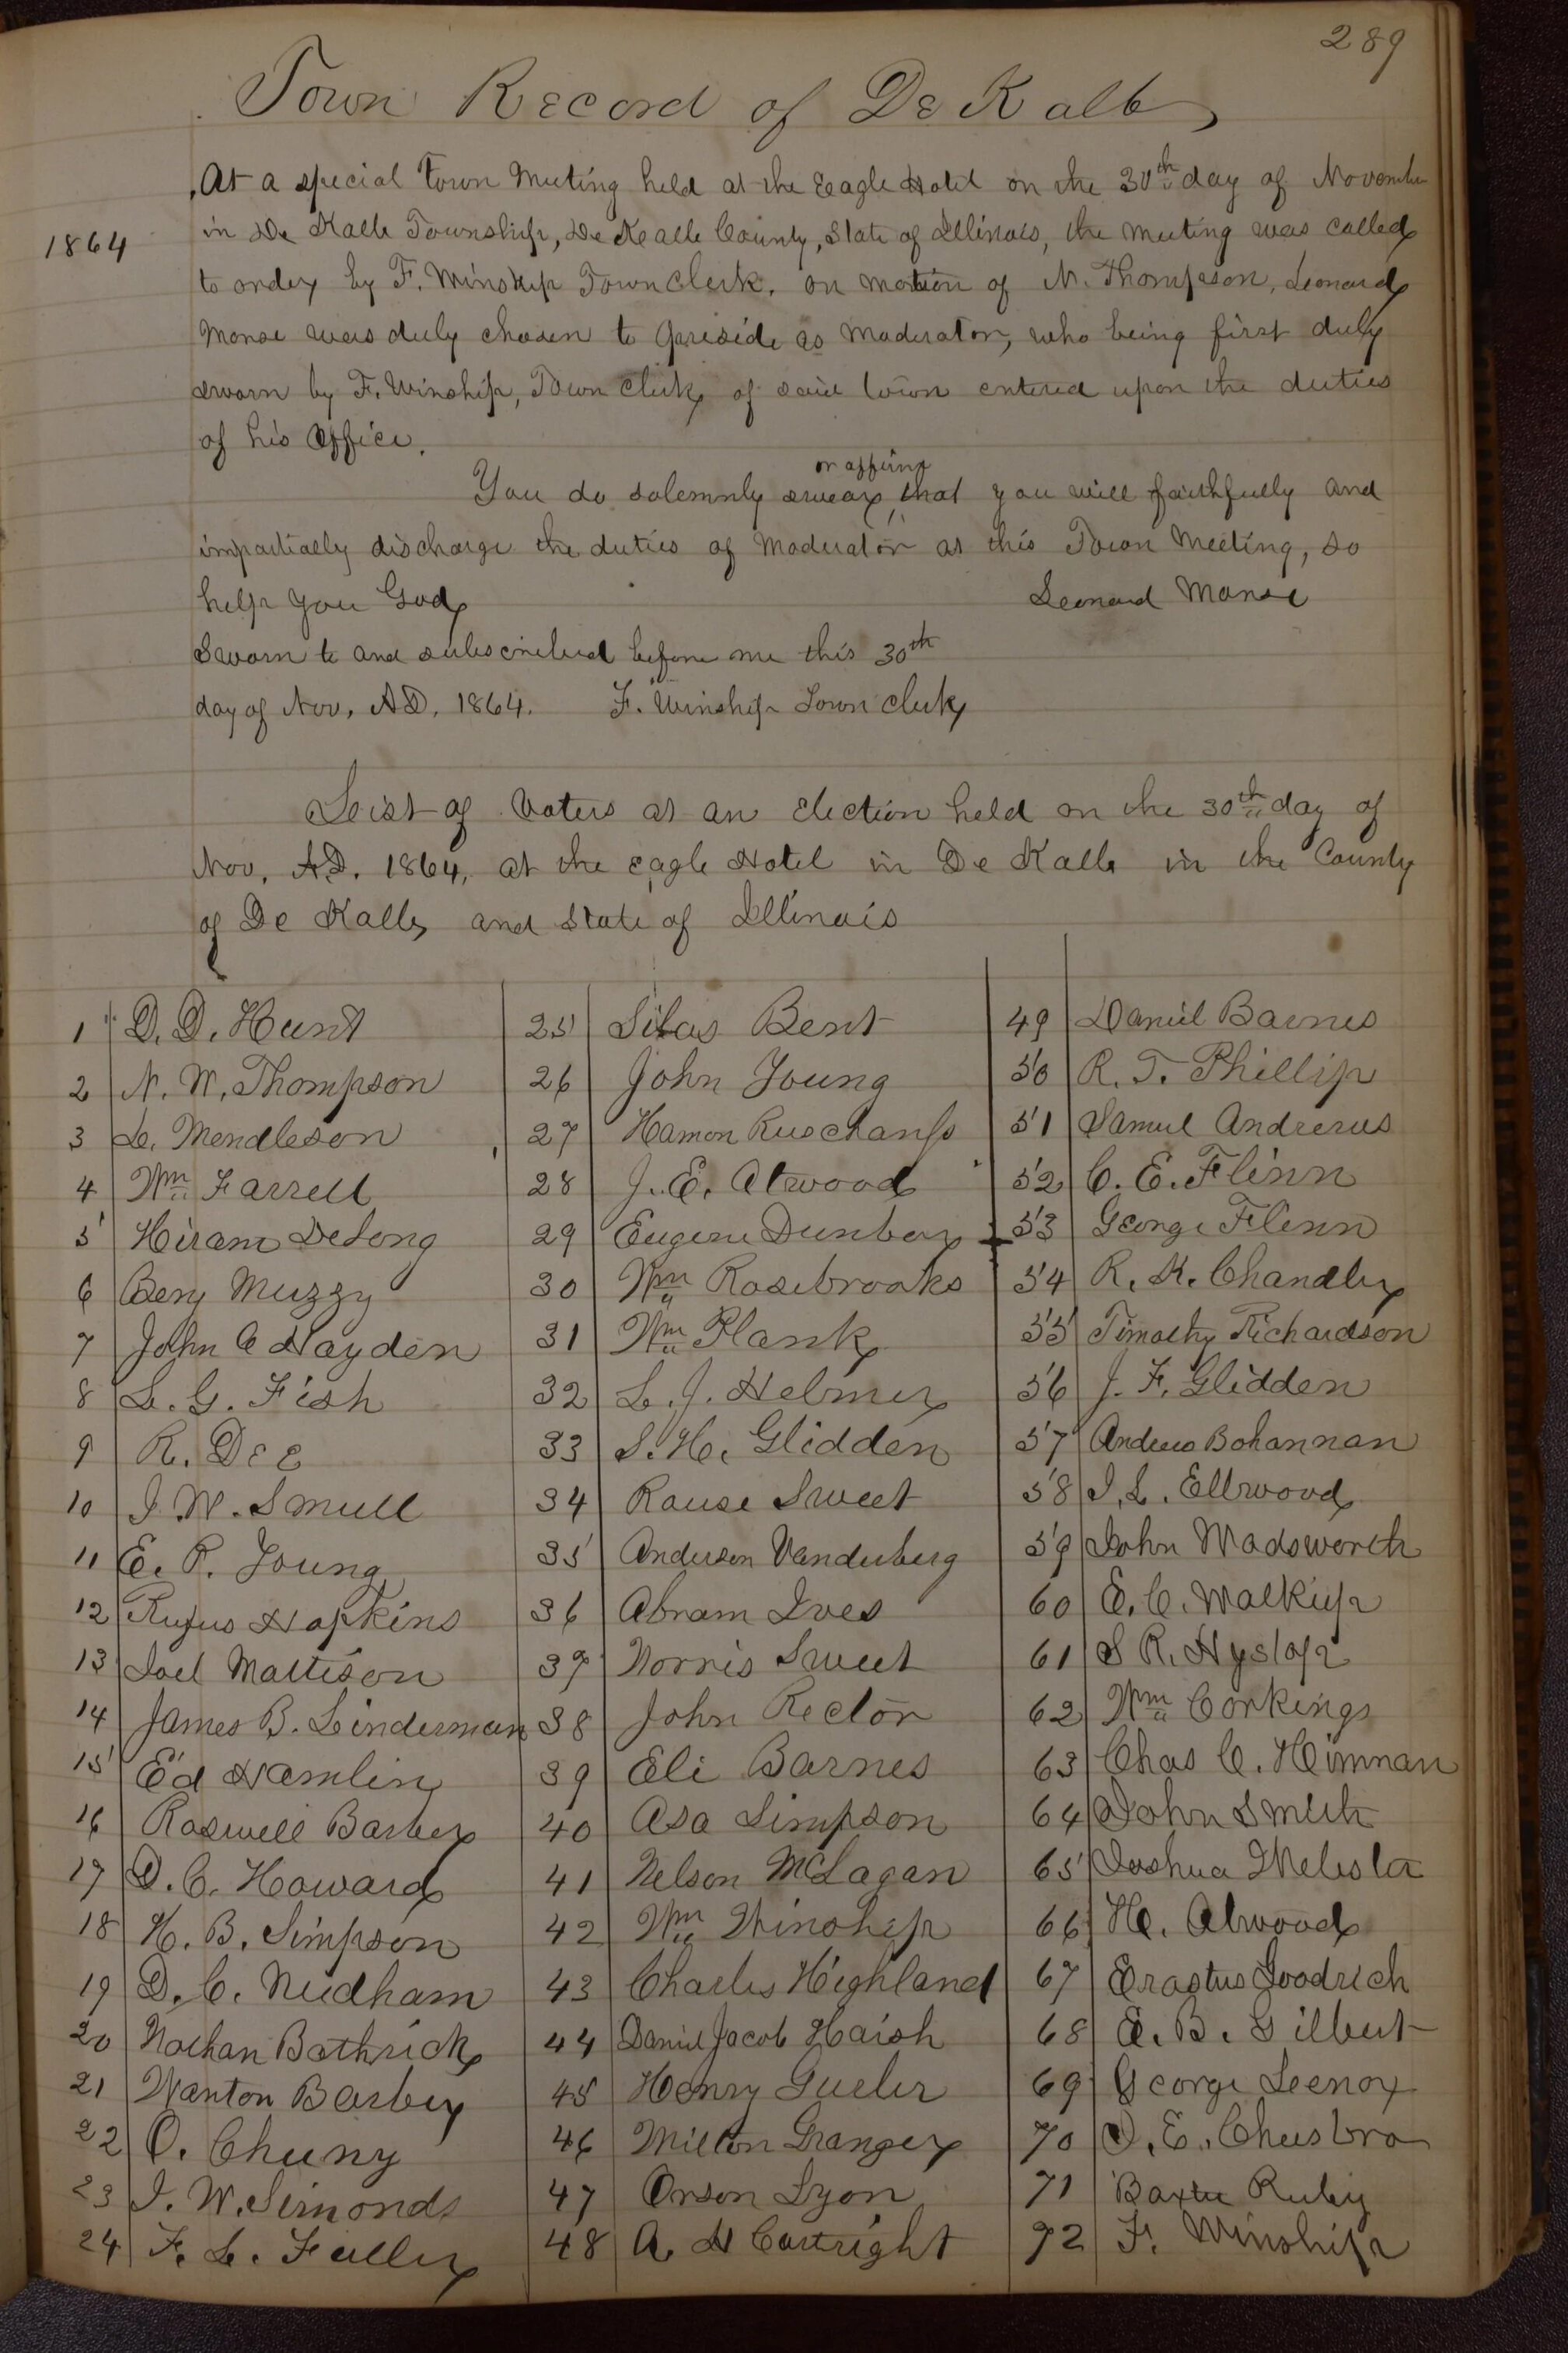 289
Town Record of De Kalb
At a special Town Meeting held at the Eagle Hotel on the 30th day of November
1864
in De Kalb Township, De Kalb County, State of Illinois, the meeting was called
to order by F. Winship Town Clerk. on motion of N. Thompson, Leonard
Morse was duly chosen to preside as Moderator, who being first duly
sworn by F. Winship, Town Clerk of said town entered upon the duties
of his Office.
or affirm
You do solemnly swear, that you will faithfully and
impartially discharge the duties of Moderator at this Town Meeting, so
help you God,
Leonard Morse
Sworn to and subscribed before me this 30th
day of Nov. A.D. 1864. F. Winship Town Clerk
List of Voters at an Election held on the 30th day of
Nov. A.D. 1864, at the Eagle Hotel in De Kalb in the County
of De Kalb, and State of Illinois
1 D. D. Hunt
2 N. W. Thompson
3 L. Mendleson
4 Wm Farrell
5 Hiram DeLong
6 Benj Muzzy
7 John C Hayden
8 L. G. Fish
9 R. Dee
10 J. W. Smull
11 E. P. Young
12 Rufus Hopkins
13 Joel Mattison
14 James B. Linderman
15 Ed Hamlin
16 Roswell Barber
17 D. C. Howard
18 H. B. Simpson
19 D. C. Needham
20 Nathan Bathrick
21 Wanton Barber
22 O. Cheeny
23 J. W. Simonds
24 F. L. Fuller
25 Silas Bent
26 John Young
27 Hamon
28 J. E. Atwood
29 Eugene Dunbar
30 Wm Rosebrooks
31 Wm Plank
32 L. J. Helmer
33 S. H. Glidden
34 Rouse Sweet
35 Anderson Vanderberg
36 Abram Ives
37 Norris Sweet
38 John Rector
39 Eli Barnes
40 Asa Simpson
41 Nelson McLagan
42 Wm Winship
43 Charles Highland
44 Daniel Jacob Haish
45 Henry Gueler
46 Milton Granger
47 Orson Lyon
48 A. H Cartright
49 Daniel Barnes
50 R. T. Phillip
51 Samuel Andrews
52 C. E. Flinn
53 George Flinn
54 R. K. Chandler
55 Timothy Richardson
56 J. F. Glidden
57 Andrew Bohannan
58 I. L. Ellwood
59 John Wadsworth
60 E. C. Walkup
61 S R. Hyslop
62 Wm Corkings
63 Chas C. Himman
64 John Smith
65 Joshua Webster
66 H. Atwood
67 Erastus Goodrich
68 E. B. Gilbert
69 George Leenox
70 D. E. Cheesbro
71 Baxter Ruby
72 F. Winship